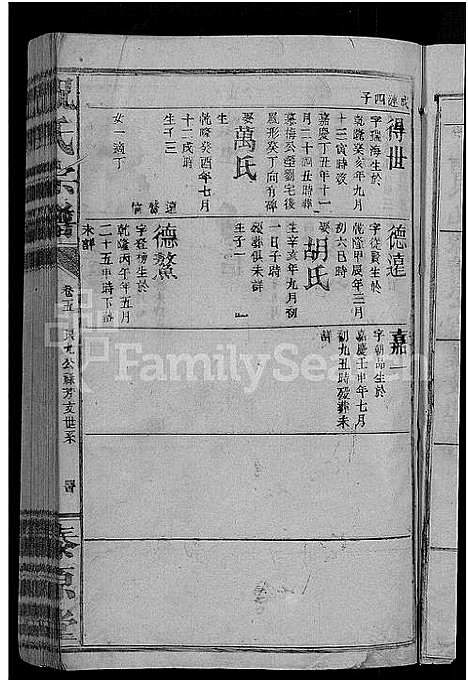 成雄四子
得世
字瑞海生於
乾隆癸亥年九月
十三寅時歿
嘉慶丁丑年十一
月二十六丑時葬
墓梅公塋劉宅後
蜃形癸丁向有碑
娶
萬氏
生
乾隆癸酉年七月
十二戌時
生子三
德達
德鰲
女一適丁
德達
字從賢生於
乾隆甲辰年三月
初六日時
娶
胡氏
生辛亥年九月初
一日子時
歿葬俱未詳
生子一
德鰲
字登榜生於
乾隆丙午年五月
二十五申時下
未詳
嘉一
字朝品生於
嘉慶壬申年七月
初九五時歿葬未
詳
氏宗譜
卷五
九公
芳支世系
源堂
FamilySearch